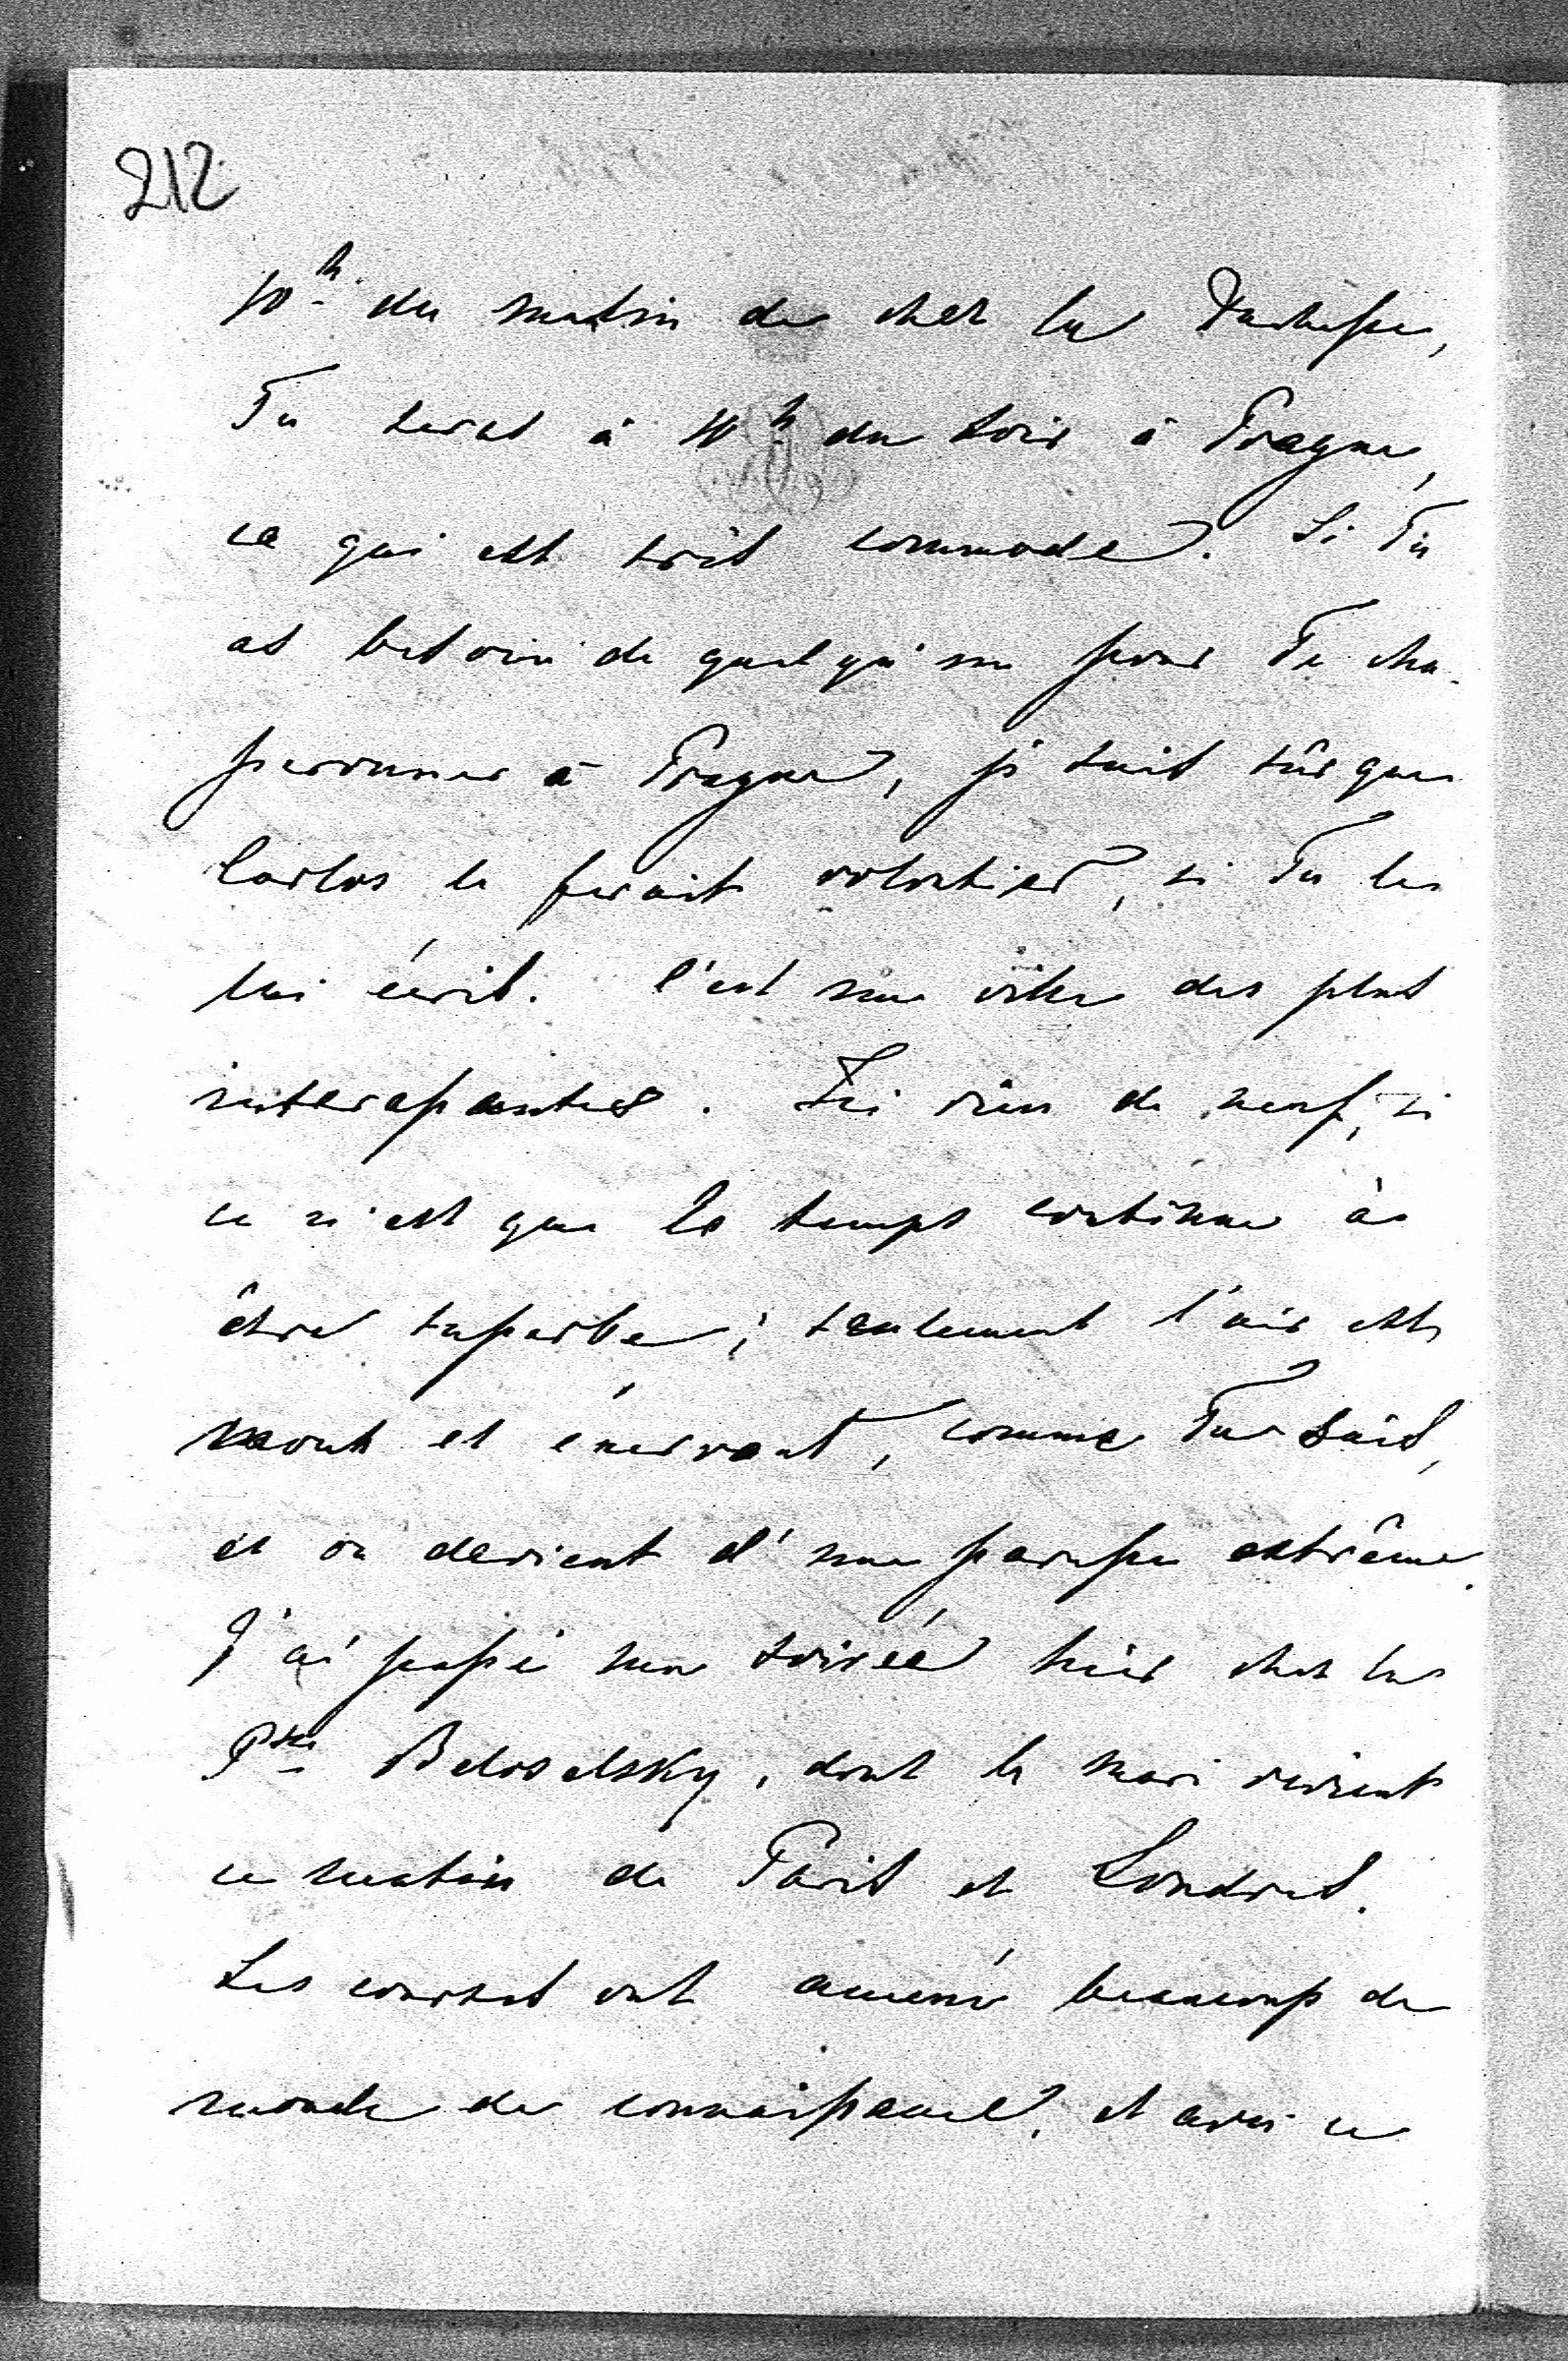 212
10h du matin de chez la Duchesse,
Tu seras à 10h du soir à Prague,
ce qui est très commode. Si Tu
as besoin de quelqu'un pour Te cha-
peronner à Prague, je suis sûr que
Carlos le ferait volontier, si Tu le
lui écris. C'est une ville des plus
interessantes. Ici rien de neuf, si
ce n'est que le temps continue à
être superbe; seulement l'air est
mout et énervant, comme Tu sais,
et on devient d'une paresse extrême.
J'ai passé ma soirée hier chez la
Psse Beloselsky, dont le mari revient
ce matin de Paris et Londres.
Les courses ont amené beaucoup de
monde de connaissance, et avec ce